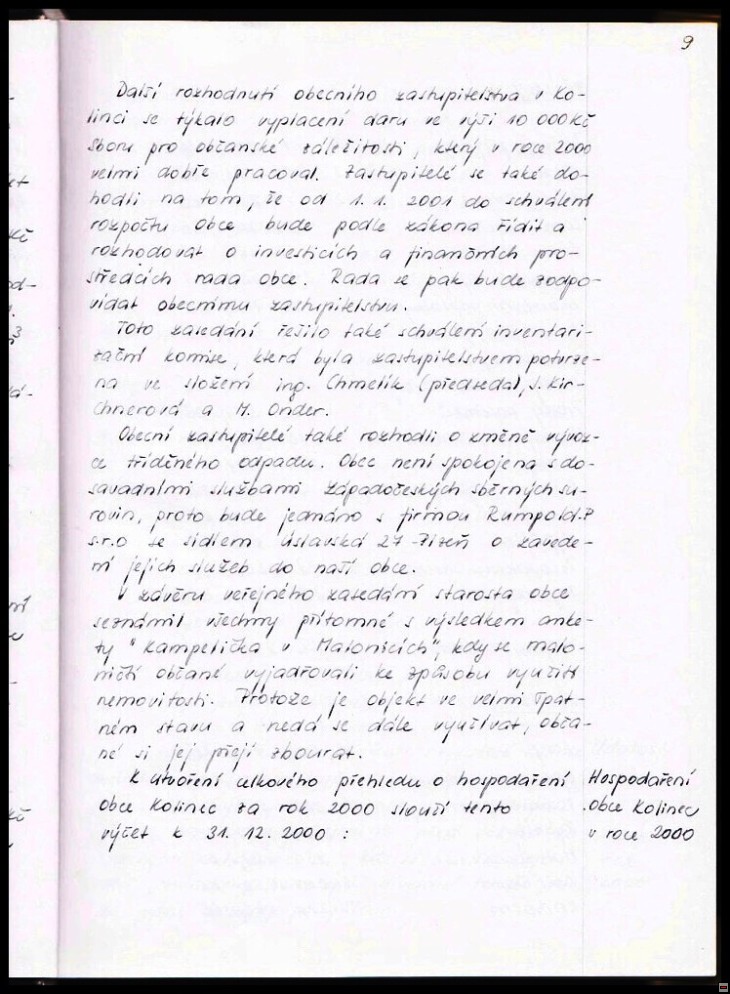 9
Další rozhodnutí obecního zastupitelstva v Ko-
linci se týkalo vyplacení daru ve výši 10 000 Kč
Sboru pro občanské záležitosti, který v roce 2000
velmi dobře pracoval. Zastupitelé se také do-
hodli na tom, že od 1. 1. 2001 do schválení
rozpočtu obce bude podle zákona řídit a
rozhodovat o investicích a finančních pro-
středcích rada obce. Rada se pak bude zodpo-
vídat obecnímu zastupitelstvu.
Toto zasedání řešilo také schválení inventari-
zační komise, která byla zastupitelstvem potvrze-
na ve složení ing. Chmelík (předseda), J. Kir-
chnerová a M. Onder.
Obecní zastupitelé také rozhodli o změně vývoz-
ce tříděného odpadu. Obec není spokojena s do-
savadními službami Západočeských sběrných su-
rovin, proto bude jednáno s firmou Rumpold-P
s.r.o se sídlem Úslavská 27 Plzeň o zavede-
ní jejich služeb do naší obce.
V závěru veřejného zasedání starosta obce
seznámil všechny přítomné s výsledkem anke-
ty "Kampelička v Malonicích", kdy se malo-
ničtí občané vyjadřovali ke způsobu využití
nemovitosti. Protože je objekt ve velmi špat-
ném stavu a nedá se dále využívat, obča-
né si jej přejí zbourat.
K utvoření celkového přehledu o hospodaření
obce Kolinec za rok 2000 slouží tento
výčet k 31. 12. 2000 :
Hospodaření
obce Kolinec
v roce 2000